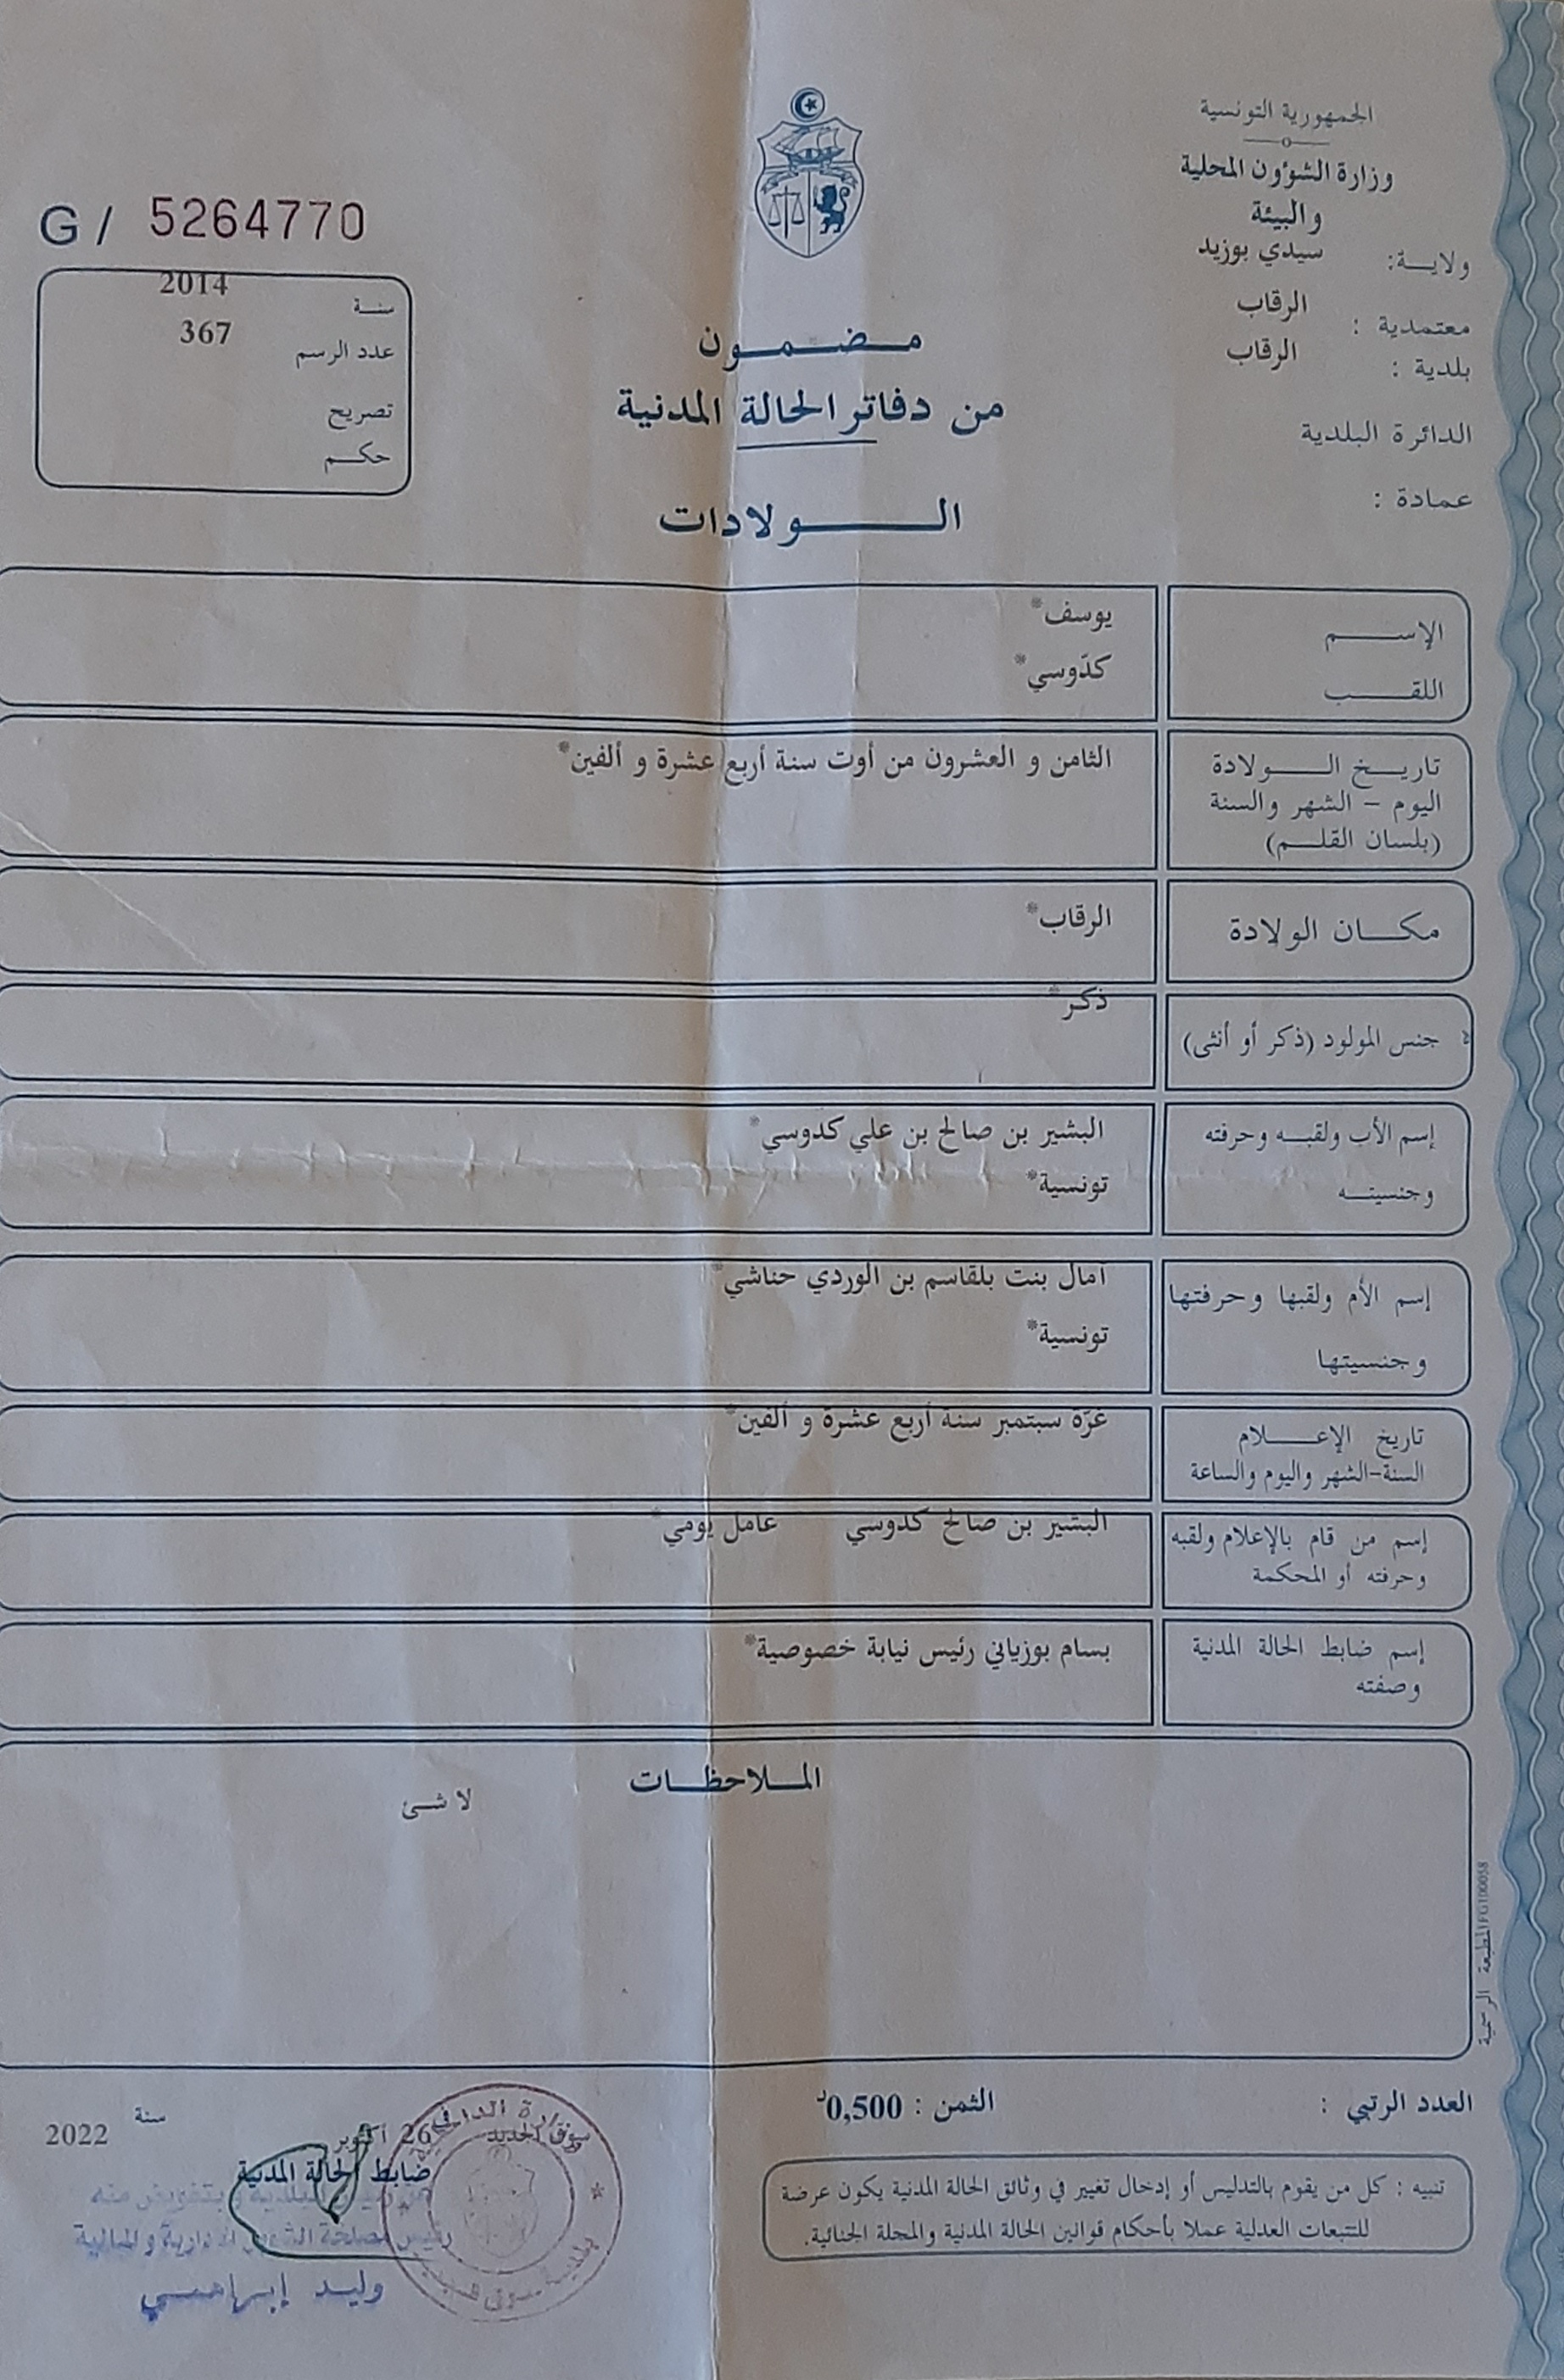 الجمهورية التونسية
وزارة الشؤون المحلية
والبيئة
ولاية: سيدي بوزيد
معتمدية : الرقاب
بلدية : الرقاب
الدائرة البلدية
عمادة :
G / 5264770
سنة 2014
عدد الرسم 367
تصريح
حكم
مضمون
من دفاتر الحالة المدنية
الولادات
الإسم يوسف*
اللقب كدّوسي*
تاريخ الولادة الثامن و العشرون من أوت سنة أربع عشرة و ألفين*
اليوم - الشهر والسنة
(بلسان القلم)
مكان الولادة الرقاب*
جنس المولود (ذكر أو أنثى) ذكر*
إسم الأب ولقبه وحرفته البشير بن صالح بن علي كدوسي*
وجنسيته تونسية*
إسم الأم ولقبها وحرفتها آمال بنت بلقاسم بن الوردي حناشي*
وجنسيتها تونسية*
تاريخ الإعلام غرّة سبتمبر سنة أربع عشرة و ألفين*
السنة-الشهر واليوم والساعة
إسم من قام بالإعلام ولقبه البشير بن صالح كدوسي عامل يومي*
وحرفته أو المحكمة
إسم ضابط الحالة المدنية بسام بوزياني رئيس نيابة خصوصية*
وصفته
الملاحظات
لا شئ
المطبعة الرسمية
العدد الرتبي :
الثمن : 0,500د
تنبيه : كل من يقوم بالتدليس أو إدخال تغيير في وثائق الحالة المدنية يكون عرضة
للتتبعات العدلية عملا بأحكام قوانين الحالة المدنية والمجلة الجنائية.
سوق الجديد 26 أكتوبر سنة 2022
ضابط الحالة المدنية
رئيس مصلحة الشؤون الإدارية والمالية
وليد إبراهمي